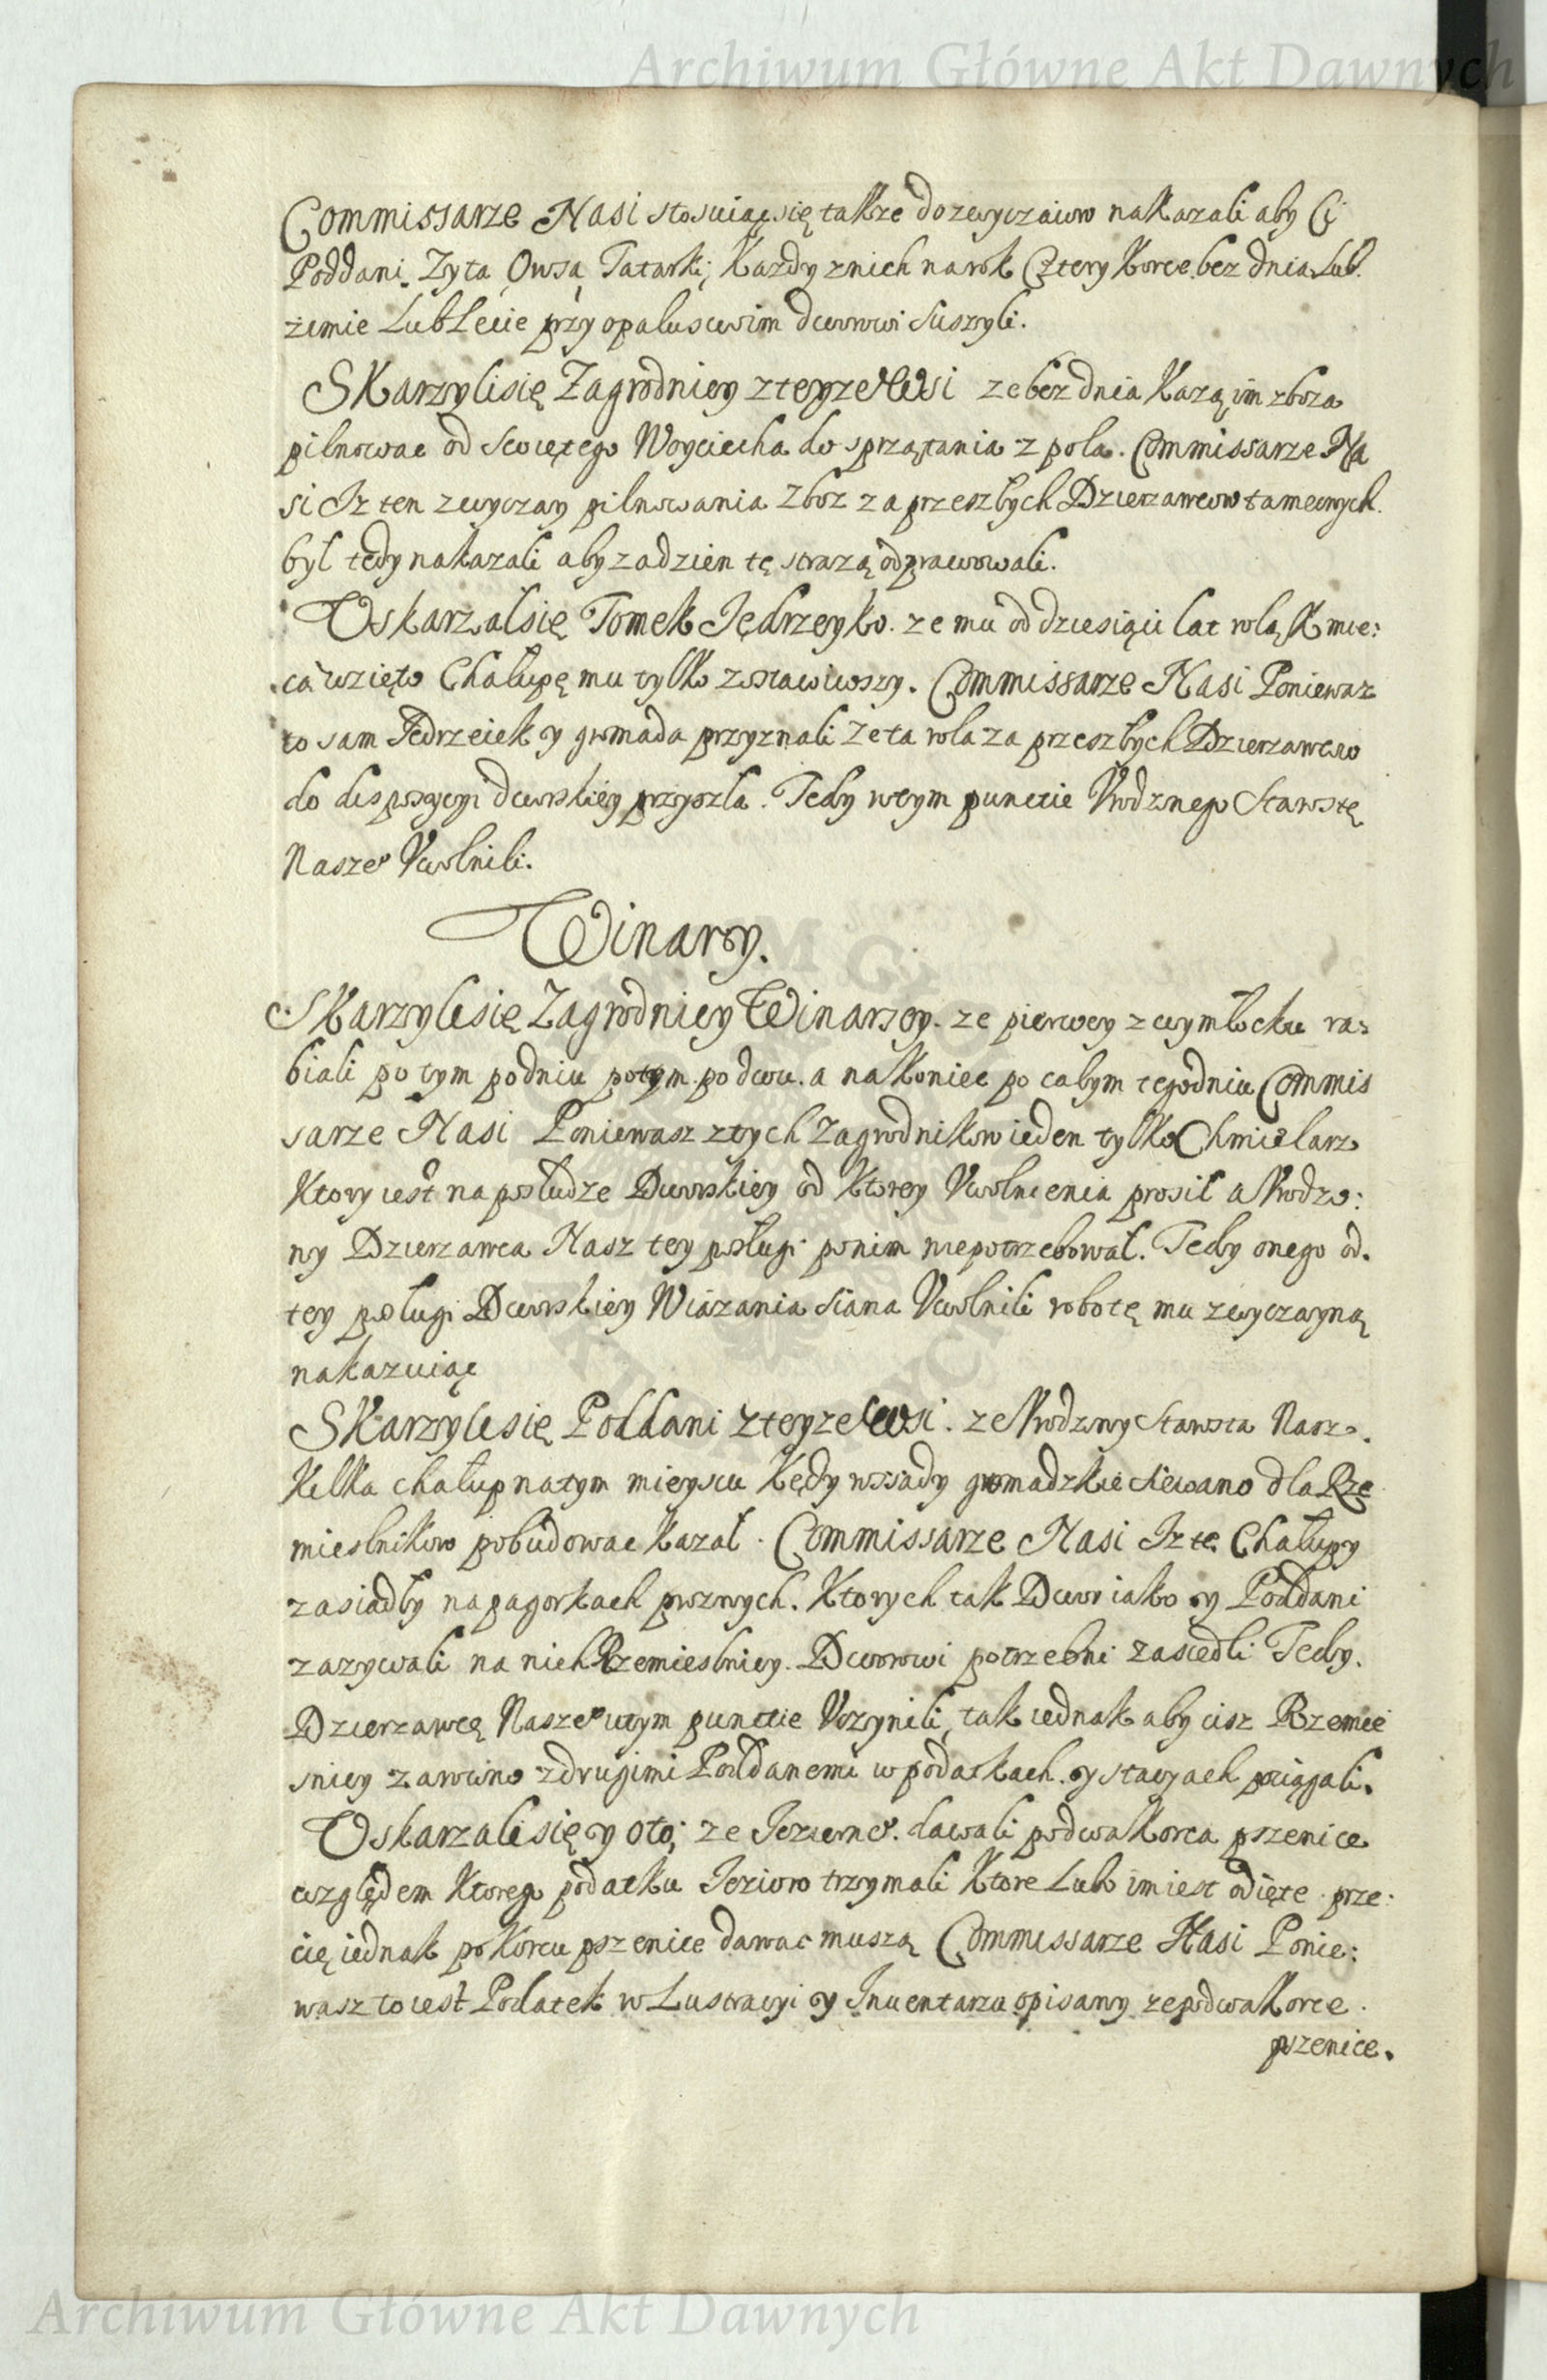 Archiwum Główne Akt Dawnych
Commissarze Nasi stosuiąc się także do zwyczaiow nakazali aby Ci
Poddani Zyta Owsa Tatarki, Kazdy znich na rok Cztery Korce bez dnia Lub
zimie Lub Lecie przy opalu swoim dworowi suszyli.
Skarzyli się Zagrodnicy z teyze Wsi ze bez dnia Kazą im zboza
pilnowac od Swiętego Woyciecha do sprzątania z pola. Commissarze Na
si Iz ten zwyczay pilnowania Zboz za przeszłych Dzierzawcow tamecznych
był tedy nakazali aby za dzien tę strazą odprawowali.
Uskarzał się Tomek Jędrzeyko. ze mu od dziesiąci lat rolą Kmie:
ca wzięto Chałupę mu tylko zostawiwszy. Commissarze Nasi Poniewaz
to sam Jędrzeiek y gromada przyznali Ze ta rola za przeszłych Dzierzawcow
do dispozycyi dworskiey przyszła. Tedy w tym punctie Urodznego Starostę
Nasze° Uwolnili.
Winary.
Skarzyli się Zagrodnicy Winarscy. ze pierwey z wymłocku ra:
biali po tym po dniu potym po dwu. a na koniec po całym tygodniu Commis
sarze Nasi Poniewasz z tych Zagrodnikow ieden tylko Chmielarz
Ktory iest na posłudze Dworskiey od Ktorey Uwolnienia prosił a Urodzo:
ny Dzierzawca Nasz tey posługi po nim niepotrzebował. Tedy onego od
tey posługi Dworskiey Wiązania siana Uwolnili robotę mu zwyczayną
nakazuiąc
Skarzyli się Poddani z teyze wsi. ze Urodzony Starosta Nasz
Kilka chałup na tym mieyscu Kędy wssady gromadzkie siewano dla Rze
mieslnikow pobudowac kazał. Commissarze Nasi Iz te Chałupy
zasiadły na pagorkach proznych. Ktorych tak Dwor iako y Poddani
zazywali na nich Rzemieslnicy. Dworowi potrzebni zasiedli Tedy.
Dzierzawcę Nasze° w tym punctie Uczynili, tak iednak aby cisz Rzemie
snicy zarowno z drugimi Poddanemi w podatkach y stacyach pociągali.
Uskarzali się y oto, ze Jezierne°. dawali po dwa Korca pszenice
względem Ktorego podatku Jezioro trzymali Ktore Lubo im iest odięte prze:
cię iednak po Korcu pszenice dawac muszą Commissarze Nasi Ponie:
wasz to iest Podatek w Lustracyi y Inwentarzu opisany ze po dwa Korce
pszenice.
Archiwum Główne Akt Dawnych